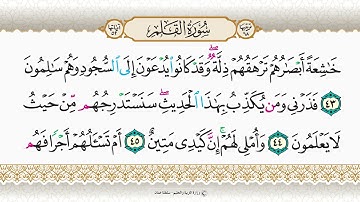 سُورَةُ القَلَمِ
خَاشِعَةً أَبْصَارُهُمْ تَرْهَقُهُمْ ذِلَّةٌ وَقَدْ كَانُوا يُدْعَوْنَ إِلَى السُّجُودِ وَهُمْ سَالِمُونَ
٤٣ فَذَرْنِي وَمَن يُكَذِّبُ بِهَٰذَا الْحَدِيثِ سَنَسْتَدْرِجُهُم مِّنْ حَيْثُ
لَا يَعْلَمُونَ ٤٤ وَأُمْلِي لَهُمْ إِنَّ كَيْدِي مَتِينٌ ٤٥ أَمْ تَسْـَٔلُهُمْ أَجْرًا فَهُم